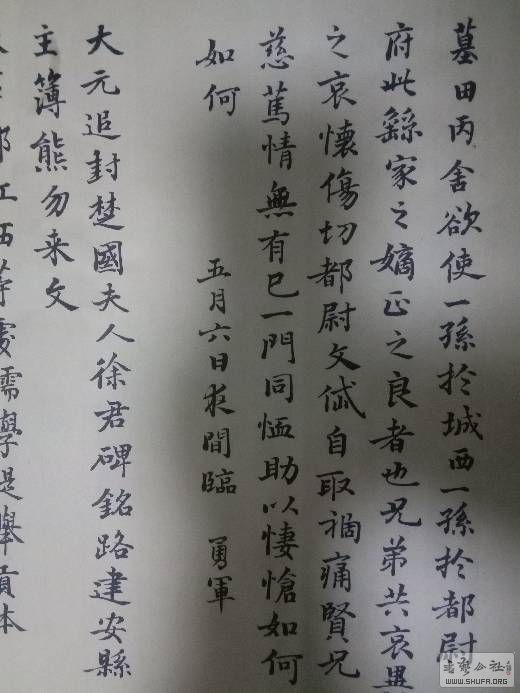 墓田丙舍欲使一孫扵城西一孫扵都尉
府此繇家之嫡正之良者也兄弟共哀異
之哀懷傷切都尉文岱自取禍痛賢兄
慈篤情無有已一門同恤助以悽愴如何
如何 五月六日夜間臨 勇軍
大元追封楚國夫人徐君碑銘路建安縣
主簿熊勿来文
郎江西等處儒學提舉貢本
書藝公社
WWW.SHUFA.ORG